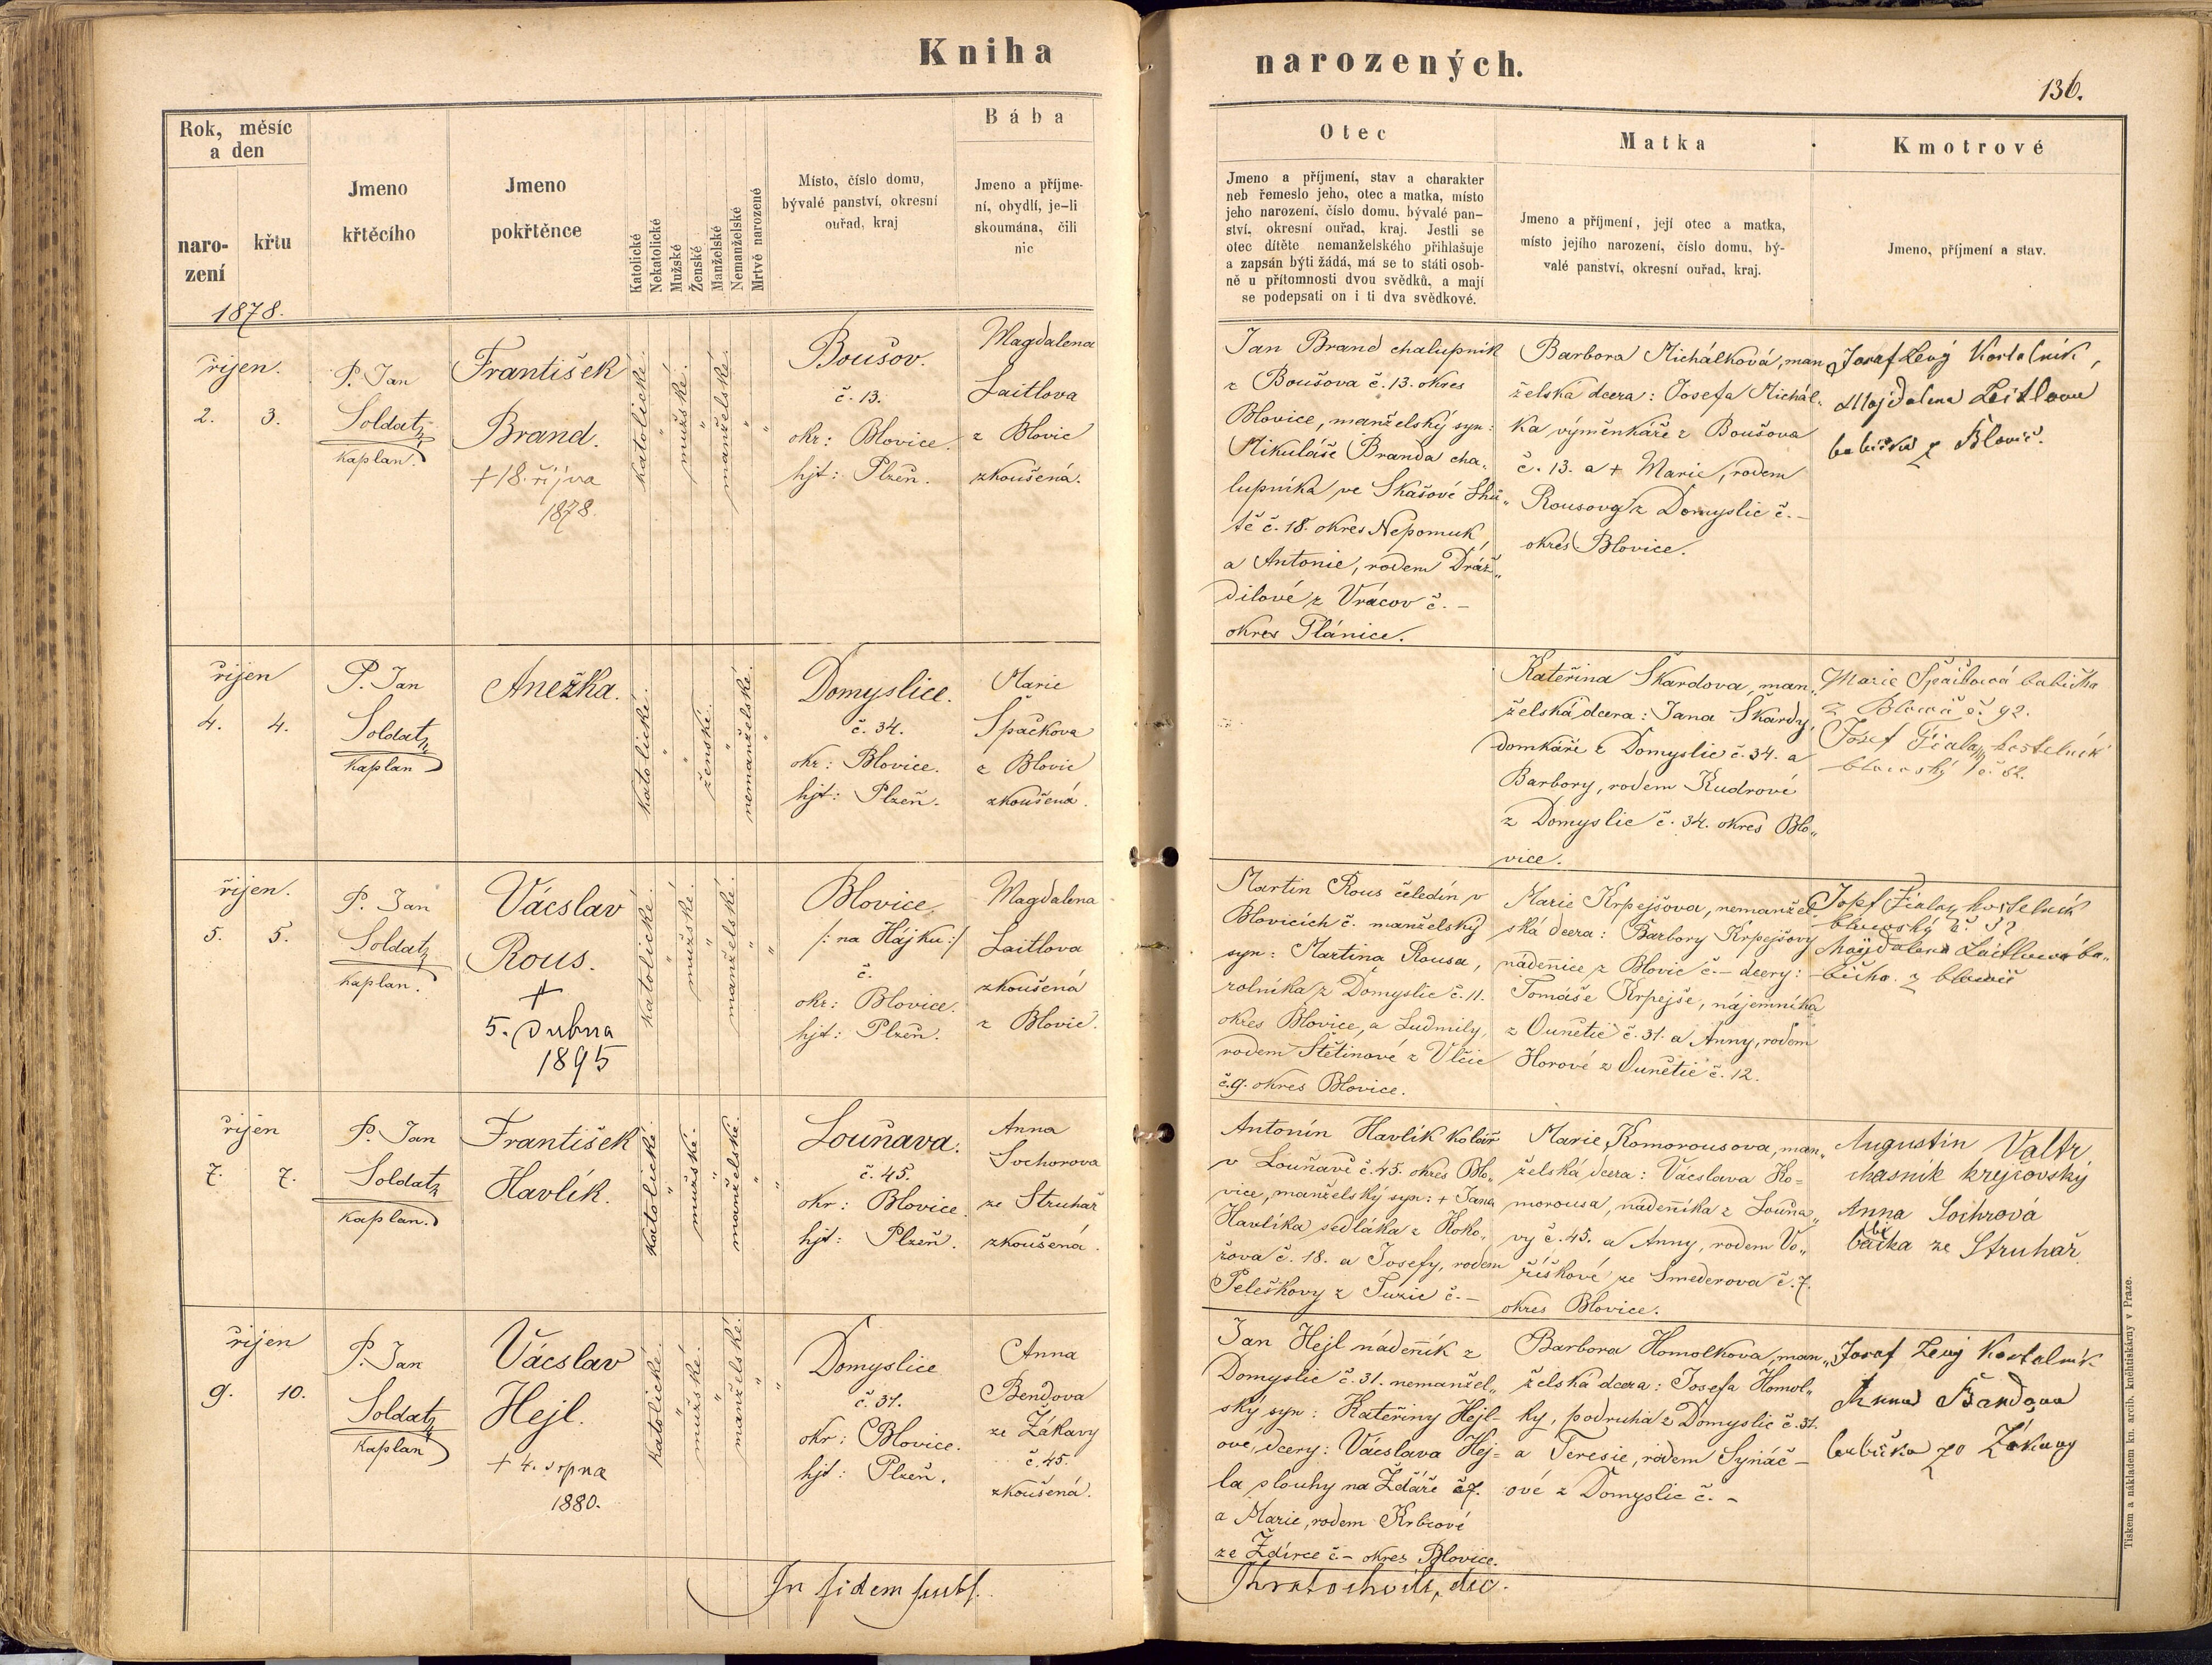 Kniha
narozených.
136.
Rok, měsíc
a den
naro-
zení
křtu
1878.
Jmeno
křtěcího
Jmeno
pokřtěnce
Katolické
Nekatolické
Mužské
Ženské
Manželské
Nemanželské
Mrtvě narozené
Místo, číslo domu,
bývalé panství, okresní
ouřad, kraj
Bába
Jmeno a příjme-
ní, obydlí, je-li
skoumána, čili
nic
Otec
Jmeno a příjmení, stav a charakter
neb řemeslo jeho, otec a matka, místo
jeho narození, číslo domu, bývalé pan-
ství, okresní ouřad, kraj. Jestli se
otec dítěte nemanželského přihlašuje
a zapsán býti žádá, má se to státi osob-
ně u přítomnosti dvou svědků, a mají
se podepsati on i ti dva svědkové.
Matka
Jmeno a příjmení, její otec a matka,
místo jejího narození, číslo domu, bý-
valé panství, okresní ouřad, kraj.
Kmotrové
Jmeno, příjmení a stav.
říjen.
2. 3.
P. Jan
Soldat
Kaplan.
František
Brand.
+ 18. října
1878.
katolické.
mužské.
manželské.
Boušov.
č. 13.
okr: Blovice.
hjt: Plzeň.
Magdalena
Laitlova
z Blovic
zkoušená.
Jan Brand chalupník
z Boušova č. 13. okres
Blovice, manželský syn:
Mikuláše Branda cha„
lupníka ve Skašové Lhů„
tě č. 18. okres Nepomuk,
a Antonie, rodem Dráž„
dilové z Vrácov č. –
okres Plánice.
Barbora Michálková, man
želská dcera: Josefa Michál„
ka výměnkáře z Boušova
č. 13. a + Marie, rodem
Rousové z Domyslic č. –
okres Blovice.
Josef Levý Kostelník,
Majdalena Leitlova
babička z Blovic.
říjen
4. 4.
P. Jan
Soldat
Kaplan
Anežka.
katolické.
ženské.
nemanželské.
Domyslice.
č. 34.
okr: Blovice.
hjt: Plzeň.
Marie
Špačkova
z Blovic
zkoušená.
Kateřina Škardova, man„
želská dcera: Jana Škardy,
domkáře z Domyslic č. 34. a
Barbory, rodem Kudrové
z Domyslic č. 34. okres Blo„
vice.
Marie babička
z Blovic č. 92.
Josef Fiala, kostelník
blovský č. 82.
říjen.
5. 5.
P. Jan
Soldat
Kaplan.
Vácslav
Rous.
+
5. Dubna
1895
katolické.
mužské.
manželské.
Blovice
/: na Hájku :/
č.
okr: Blovice.
hjt: Plzeň.
Magdalena
Laitlova
zkoušená
z Blovic.
Martin Rous čeledín v
Blovicích č. manželský
syn: Martina Rousa,
rolníka z Domyslic č. 11.
okres Blovice, a Ludmily,
rodem Štětinové z Vlčic
č. 9. okres Blovice.
Marie Krpejšova, nemanžel„
ská dcera: Barbory Krpejšovy
nádenice z Blovic č. – dcery:
Tomáše Krpejše, nájemníka
z Ounětic č. 31. a Anny, rodem
Horové z Ounětic č. 12.
Josef Fiala, kostelník
blovský č.
Majdalena Laitlová ba„
bička z blovic
říjen
7. 7.
P. Jan
Soldat
Kaplan.
František
Havlík.
katolické.
mužské.
manželské.
Louňava.
č. 45.
okr: Blovice.
hjt: Plzeň.
Anna
Sochorova
ze Struhař
zkoušená.
Antonín Havlík kolář
v Louňavě č. 45. okres Blo„
vice, manželský syn: + Jana
Havlíka sedláka z Koko„
řova č. 18. a Josefy, rodem
Peleškovy z Turic č. –
Marie Komorousova, man„
želská dcera: Vácslava Ko=
morousa, nádeníka z Louňa„
vy č. 45. a Anny, rodem Vo„
říškové ze Smederova č. 7.
okres Blovice.
Augustin Valtr
chasník krejčovský
Anna Sochrová
babička ze Struhař
říjen
9. 10.
P. Jan
Soldat
Kaplan
Vácslav
Hejl.
+ 4. srpna
1880.
katolické.
mužské.
manželské.
Domyslice
č. 31.
okr: Blovice.
hjt: Plzeň.
Anna
Bendova
ze Žákavy
č. 45.
zkoušená.
Jan Hejl nádeník z
Domyslic č. 31. nemanžel„
ský syn: Kateřiny Hejl-
ové, dcery: Vácslava Hej=
la slouhy na Ždáře č. 7.
a Marie, rodem Krbcové
ze Ždírce č – okres Blovice.
Barbora Homolkova, man„
želská dcera: Josefa Homol„
ky, podruha z Domyslic č. 31.
a Teresie, rodem Synáč –
ové z Domyslic č. –
Josef Levý Kostelník
Anna Bandova
babička ze Žákavy
In fidem
děk.
Tiskem a nákladem kn. arcib. kněhtiskárny v Praze.